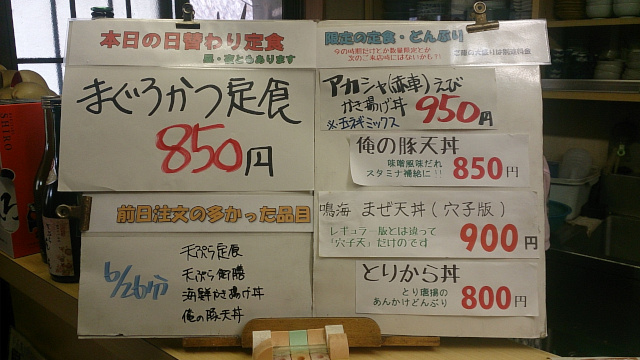 本日の日替わり定食
昼・夜ともあります
まぐろかつ定食
850円
前日注文の多かった品目
6/26分
天ぷら定食
天ぷら御膳
海鮮かき揚げ丼
俺の豚天丼
限定の定食・どんぶり
今の時期だけとか数量限定とか
次のご来店時にはないかも?!
ご飯の大盛りは別途料金
アカシャ(赤車)えび
かき揚げ丼 950円
※玉ネギミックス
俺の豚天丼
味噌風味だれ
スタミナ補給に!!
850円
鳴海 まぜ天丼(穴子版)
レギュラー版とは違って
「穴子天」だけのです
900円
とりから丼
とり唐揚の
あんかけどんぶり
800円